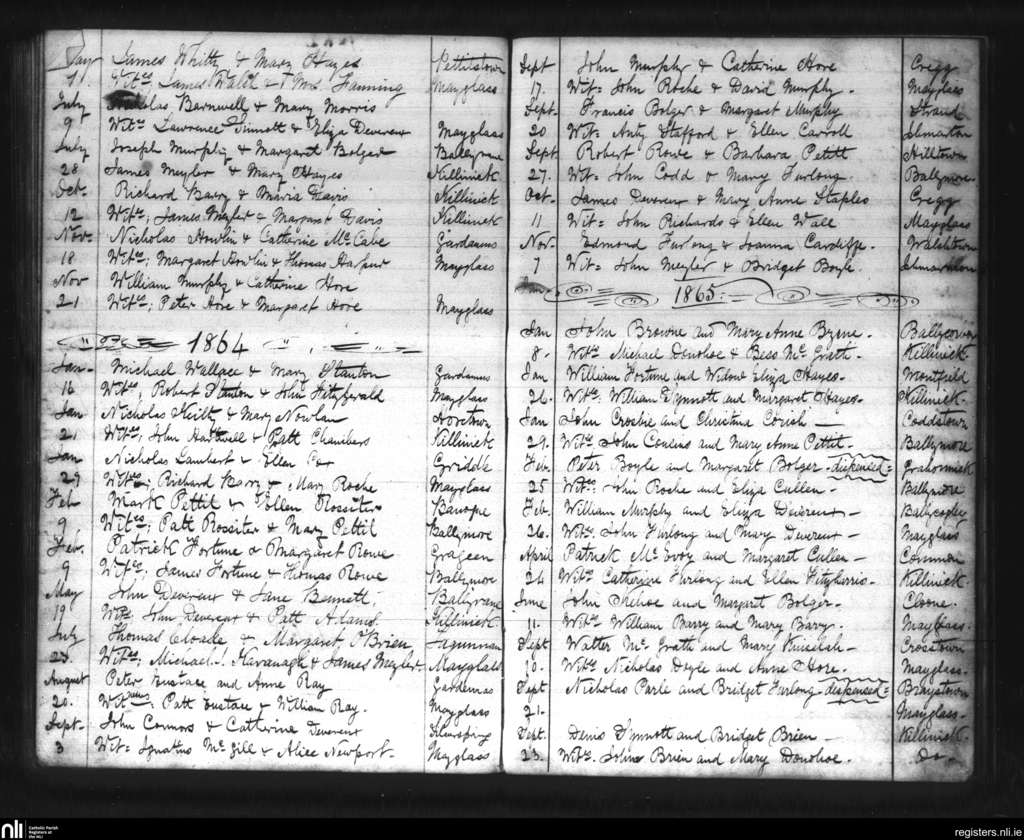 May James Whitty & Mary Hayes Pettitstown
11. Wit:es James Walsh & Mrs. Fanning Mayglass
July Nicholas Barnwell & Mary Morris
9 Wit:es Lawrence Sinnott & Eliza Devereux Mayglass
July Joseph Murphy & Margaret Bolger Ballyrane
28 James Meyler & Mary Hayes Killinick
Oct. Richard Barry & Maria Davis Killinick
12 Wit:es; James Meyler & Margaret Davis Killinick
Nov. Nicholas Howlin & Catherine McCabe Gardamus
18 Wit:es; Margaret Howlin & Thomas Harpur Mayglass
Nov William Murphy & Catherine Hore
21 Wit:es; Peter Hore & Margaret Hore Mayglass
1864
Jan. Michael Wallace & Mary Stanton Gardamus
16 Wit:es; Robert Stanton & John Fitzgerald Mayglass
Jan Nicholas & Mary Nowlan Horetown
21 Wit:es; John & Patt Chambers Killinick
Jan Nicholas Lambert & Ellen Cox
29 Wit:es; Richard Barry & Mary Roche Mayglass
Feb Mark Pettit & Ellen Rossiter Banope
9 Wit:es; Patt Rossiter & Mary Pettit Ballymore
Feb. Patrick Fortune & Margaret Rowe Grageen
9 Wit:es; James Fortune & Thomas Rowe Ballymore
May John Devereux & Jane Bennett; Ballyrane
19 Wit:s John Devereux & Patt Adams. Killinick
July Thomas Cloade & Margaret O'Brien
23. Wit:es; Michael J. Kavanagh & James Meyler Mayglass
August Peter Eustace and Anne Ray Gardemas
20. Witnesses: Patt Eustace & William Ray. Mayglass
Sept. John Connors & Catherine Devereux
3 Wit= Ignatius McGill & Alice Newport. Mayglass
Sept John Murphy & Catherine Hore Cregg
17. Wit= John Roche & David Murphy. Mayglass
Sept. Francis Bolger & Margaret Murphy Strand
20 Wit= Anty Stafford & Ellen Carroll
Sept Robert Rowe & Barbara Petitt Hilltown
27. Wit= John Codd & Mary Furlong. Ballymore
Oct. James Devereux & Mary Anne Staples Cregg
11 Wit= John Richards & Ellen Wall Mayglass
Nov. Edmond Furlong & Joanna Cardiffe. Walshtown
7 Wit= John Meyler & Bridget Boyle.
1865
Jan John Browne and Mary Anne Byrne.
8. Wit:s Michael Donohoe & Bess McGrath. Killinick
Jan William Fortune and Widow Eliza Hayes. Montfield
26. Wit:s. William Synnott and Margaret Hayes. Killinick.
Jan John Crosbie and Christina Corish — Coddstown
29. Wit:s John Cousins and Mary Anne Pettit. Ballymore
Feb. Peter Boyle and Margaret Bolger - dispensed = Grahormick
25 Wit:es: John Roche and Eliza Cullen - Ballymore
Feb. William Murphy and Eliza Devereux - Ballycogley
26. Wit:s. John Furlong and Mary Devereux - Mayglass
April Patrick McEvoy and Margaret Cullen - Common
24 Wit:s Catheryne Furlong and Ellen Fitzharris. Killinick.
June John Kehoe and Margaret Bolger. Cloone.
11. Wit:s William Barry and Mary Barry. Mayglass.
Sept Walter McGrath and Mary Kinselah. Crosstown
10. Wit:s Nicholas Doyle and Anne Hore. Mayglass.
Sept Nicholas Parle and Bridget Furlong. dispensed = Braystown
21. Mayglass.
Sept. Denis Synnott and Bridget Brien - Killinick.
23. Wit:s. John Brien and Mary Donohoe. Do.
nli Catholic Parish Registers at the NLI
registers.nli.ie